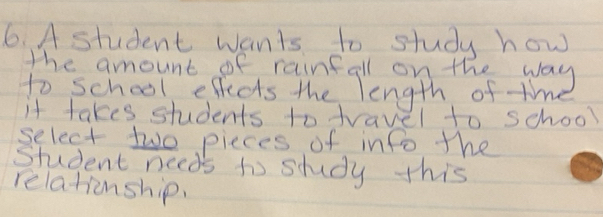 6. A student wants to study how
the amount of rainfall on the way
to school effects the length of time
it takes students to travel to school
select two pieces of info the
Student needs to study this
relationship.